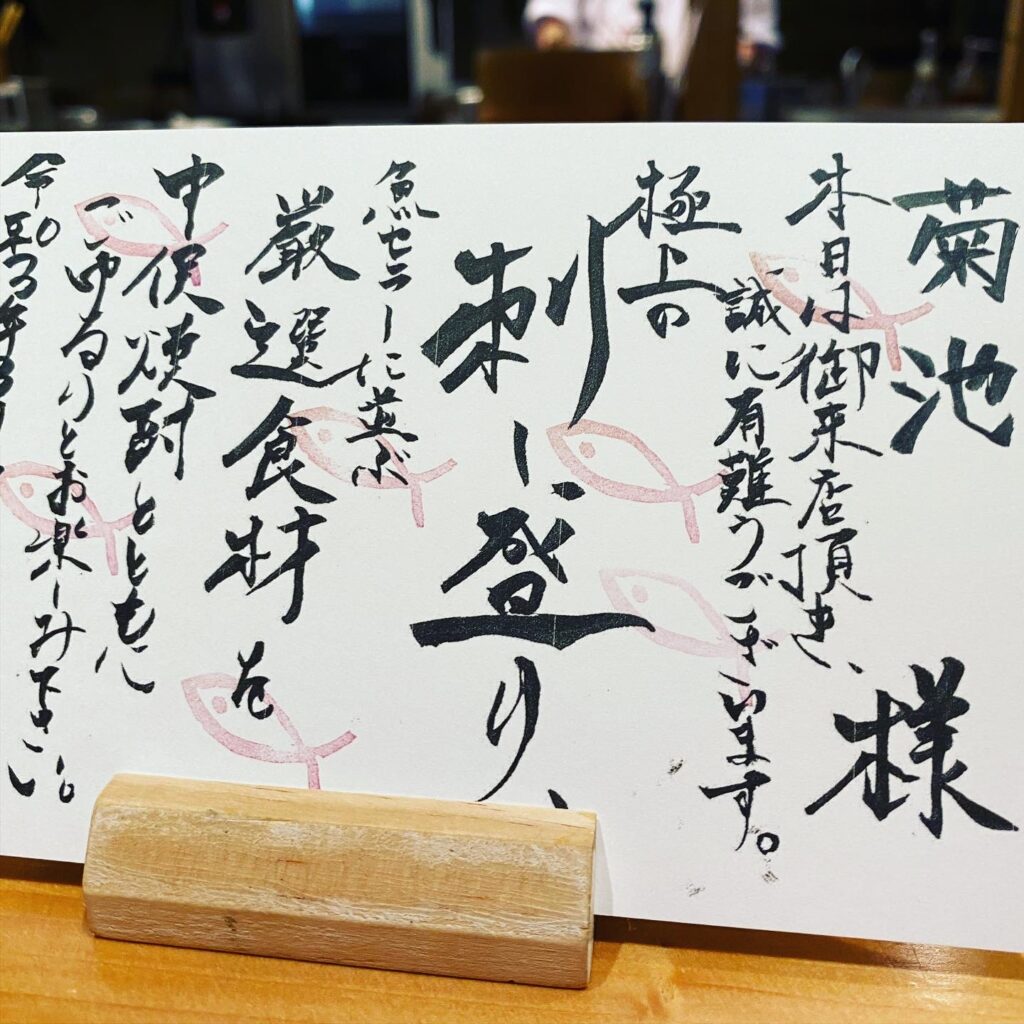 菊池 様
本日は御来店頂き、
誠に有難うございます。
極上の
刺し盛り、
魚セニーに並ぶ
厳選食材を
中俣焼酎とともに
ごゆるりとお楽しみ下さい。
令和3年3月